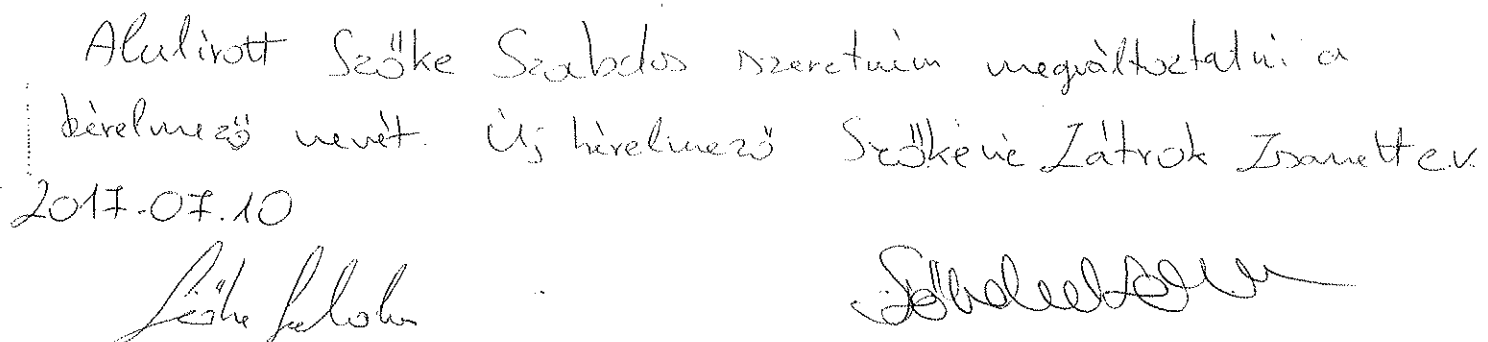 Alulírott Szőke Szabolcs szeretném megváltoztatni a
kérelmező nevét. Új kérelmező Szőkéné Zátrok Zsanett e.v.
2017.07.10
Szőke Szabolcs